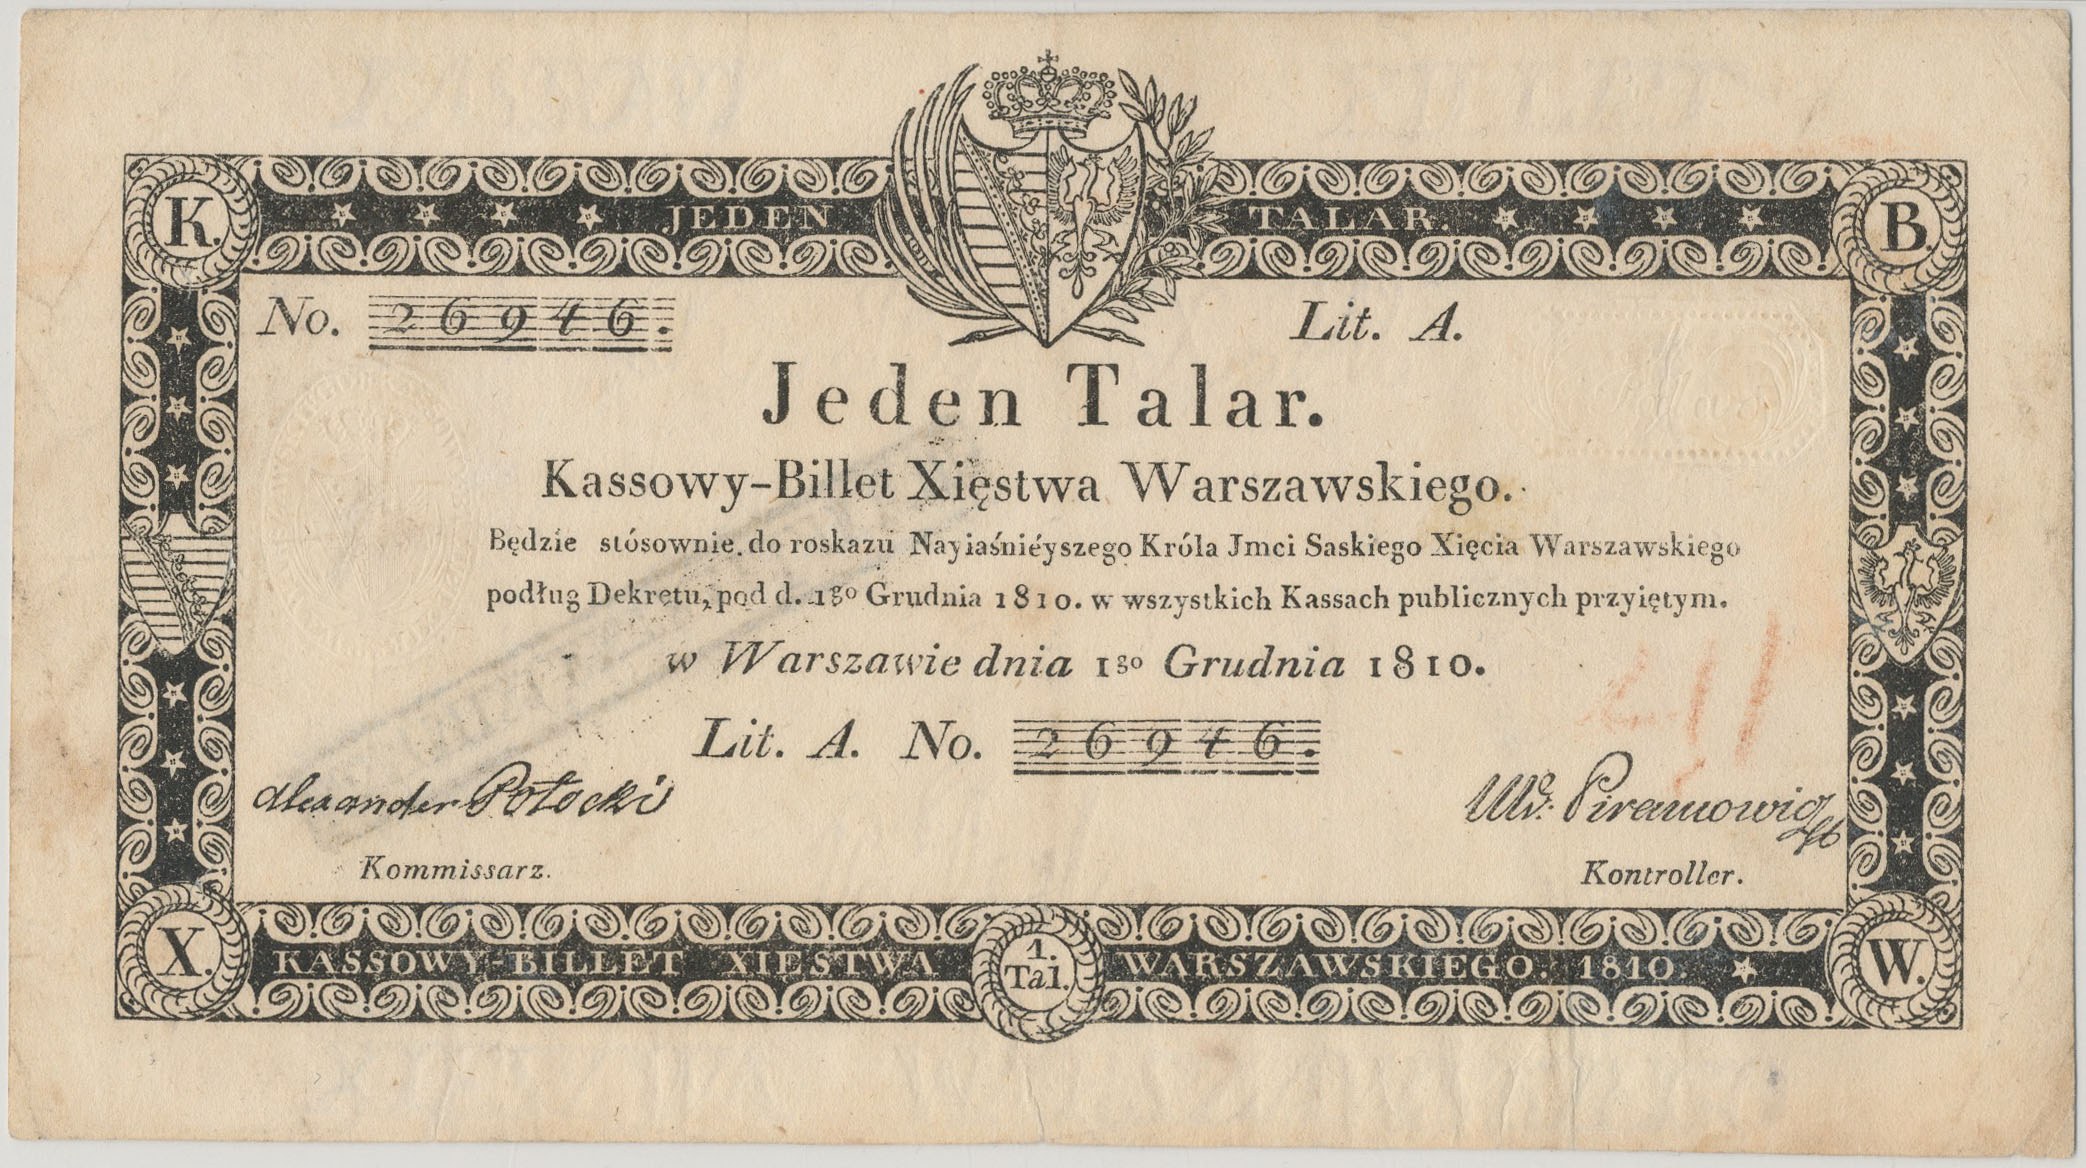 K. JEDEN TALAR. B.
No. 26946. Lit. A.
Jeden Talar.
Kassowy-Billet Xięstwa Warszawskiego.
Będzie stósownie do roskazu Nayiaśniéyszego Króla Jmci Saskiego Xięcia Warszawskiego
podług Dekretu, pod d. 1go Grudnia 1810. w wszystkich Kassach publicznych przyiętym.
w Warszawie dnia 1go Grudnia 1810.
Lit. A. No. 26946.
Alexander Potocki
Kommissarz.
Piramowicz
Kontroller.
X. KASSOWY-BILLET XIĘSTWA 1. Tal. WARSZAWSKIEGO. 1810. W.